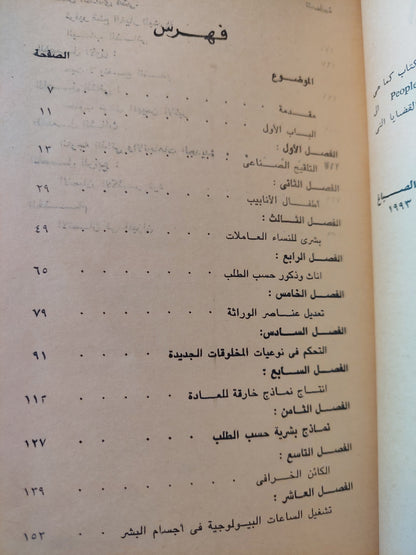 فهرس
الموضوع الصفحة
مقدمة ٧
الباب الأول ١١
الفصل الأول :
التلقيح الصناعى ١٣
الفصل الثانى :
اطفال الأنابيب ٢٩
الفصل الثالث :
بشرى للنساء العاملات ٤٩
الفصل الرابع :
اناث وذكور حسب الطلب ٦٥
الفصل الخامس :
تعديل عناصر الوراثة ٧٩
الفصل السادس:
التحكم فى نوعيات المخلوقات الجديدة ٩١
الفصل السابع :
انتاج نماذج خارقة للعادة ١١٢
الفصل الثامن :
نماذج بشرية حسب الطلب ١٢٧
الفصل التاسع :
الكائن الخرافى ١٣٩
الفصل العاشر :
تشغيل الساعات البيولوجية فى اجسام البشر ١٥٣
كتاب كما هى
People ال
القضايا التى
الصباغ
١٩٩٣